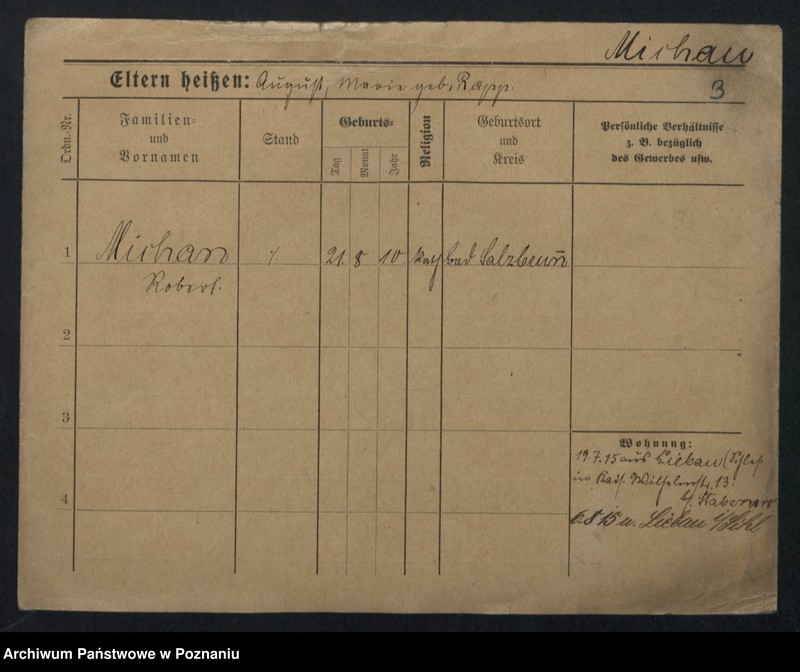 Michau
Eltern heißen: August, Marie geb. Rapp.
3
Ordn.-Nr.
Familien-
und
Vornamen
Stand
Geburts-
Tag
Monat
Jahr
Religion
Geburtsort
und
Kreis
Persönliche Verhältnisse
z. B. bezüglich
des Gewerbes usw.
1
Michau
Robert.
/.
21. 8 10. kath Bad Salzbrunn
2
3
4
Wohnung:
19.7.15 aus Liebau (Schles.
in Kais. Wilhelmstr. 13.
b/
6.8.15 n. Liebau i/Schl
Archiwum Państwowe w Poznaniu